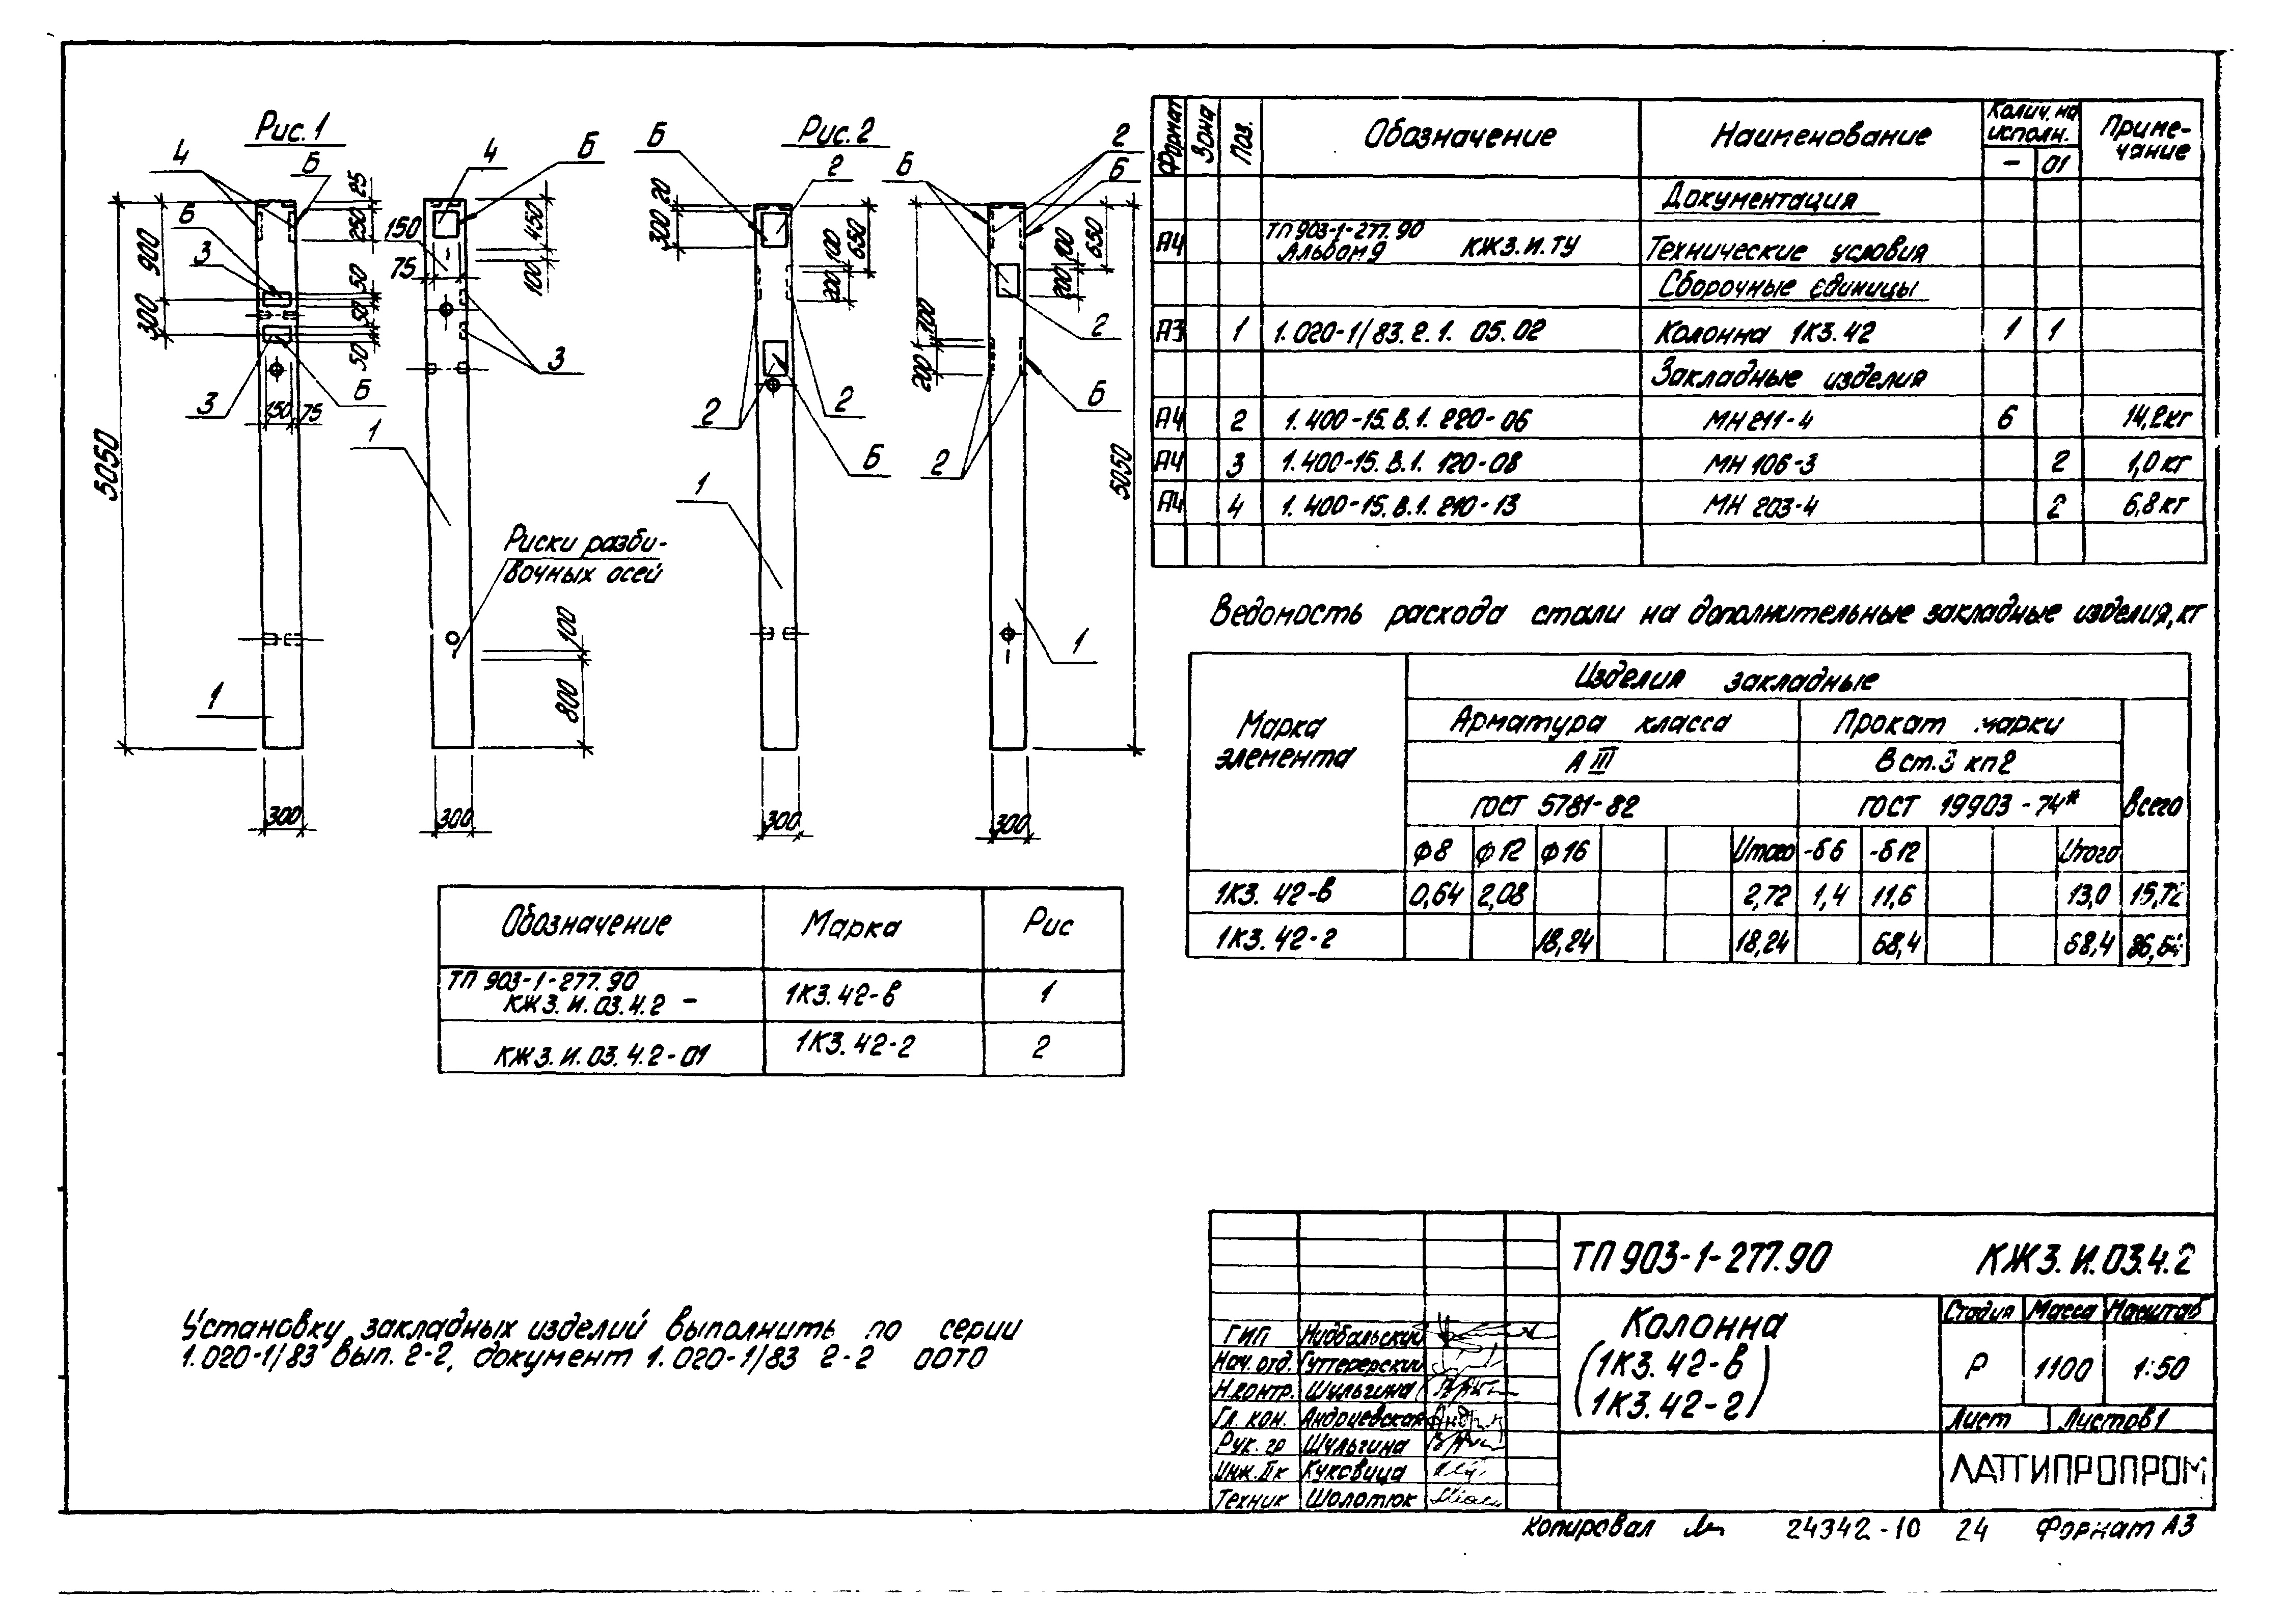 Рис. 1
4
Б
Б
3
3
Б
900
300
25
250
50
50
50
150
75
5050
1
1
300
4
Б
150
75
450
100
3
Риски разби-
вочных осей
100
800
300
Рис. 2
Б
2
20
300
100
650
200
2
2
Б
1
300
2
Б
Б
100
650
200
2
700
200
Б
2
5050
1
300
Формат
Зона
Поз.
Обозначение
Наименование
Колич. на исполн.
Приме-
чание
- 01
Документация
А4 ТП 903-1-277.90
Альбом 9 КЖ3.И.ТУ Технические условия
Сборочные единицы
А3 1 1.020-1/83.2.1. 05.02 Колонна 1К3.42 1 1
Закладные изделия
А4 2 1.400-15.В.1. 220-06 МН 211-4 6 14,2кг
А4 3 1.400-15.В.1. 120-08 МН 106-3 2 1,0 кг
А4 4 1.400-15.В.1. 210-13 МН 203-4 2 6,8 кг
Ведомость расхода стали на дополнительные закладные изделия, кг
Марка
элемента
Изделия закладные
Арматура класса Прокат марки
А III В ст.3 кп2
ГОСТ 5781-82 ГОСТ 19903-74* Всего
Ф8 Ф12 Ф16 Итого -δ6 -δ12 Итого
1К3. 42-в 0,64 2,08 2,72 1,4 11,6 13,0 15,72
1К3. 42-2 18,24 18,24 68,4 68,4 86,64
Обозначение Марка Рис
ТП 903-1-277.90
КЖ3.И.03.4.2 - 1К3.42-в 1
КЖ3.И.03.4.2-01 1К3.42-2 2
Установку закладных изделий выполнить по серии
1.020-1/83 вып. 2-2, документ 1.020-1/83 2-2 00ТО
ТП 903-1-277.90 КЖ3.И.03.4.2
Колонна
(1К3.42-в)
(1К3.42-2)
Стадия Масса Масштаб
Р 1100 1:50
Лист Листов 1
ЛАТГИПРОПРОМ
ГИП Нидбальский
Нач. отд. Гуттерерский
Н.контр. Шульгина
Гл. кон. Андриевская
Рук. гр Шульгина
Инж. IIк Куковица
Техник Шолотюк
Копировал 24342-10 24 Формат А3